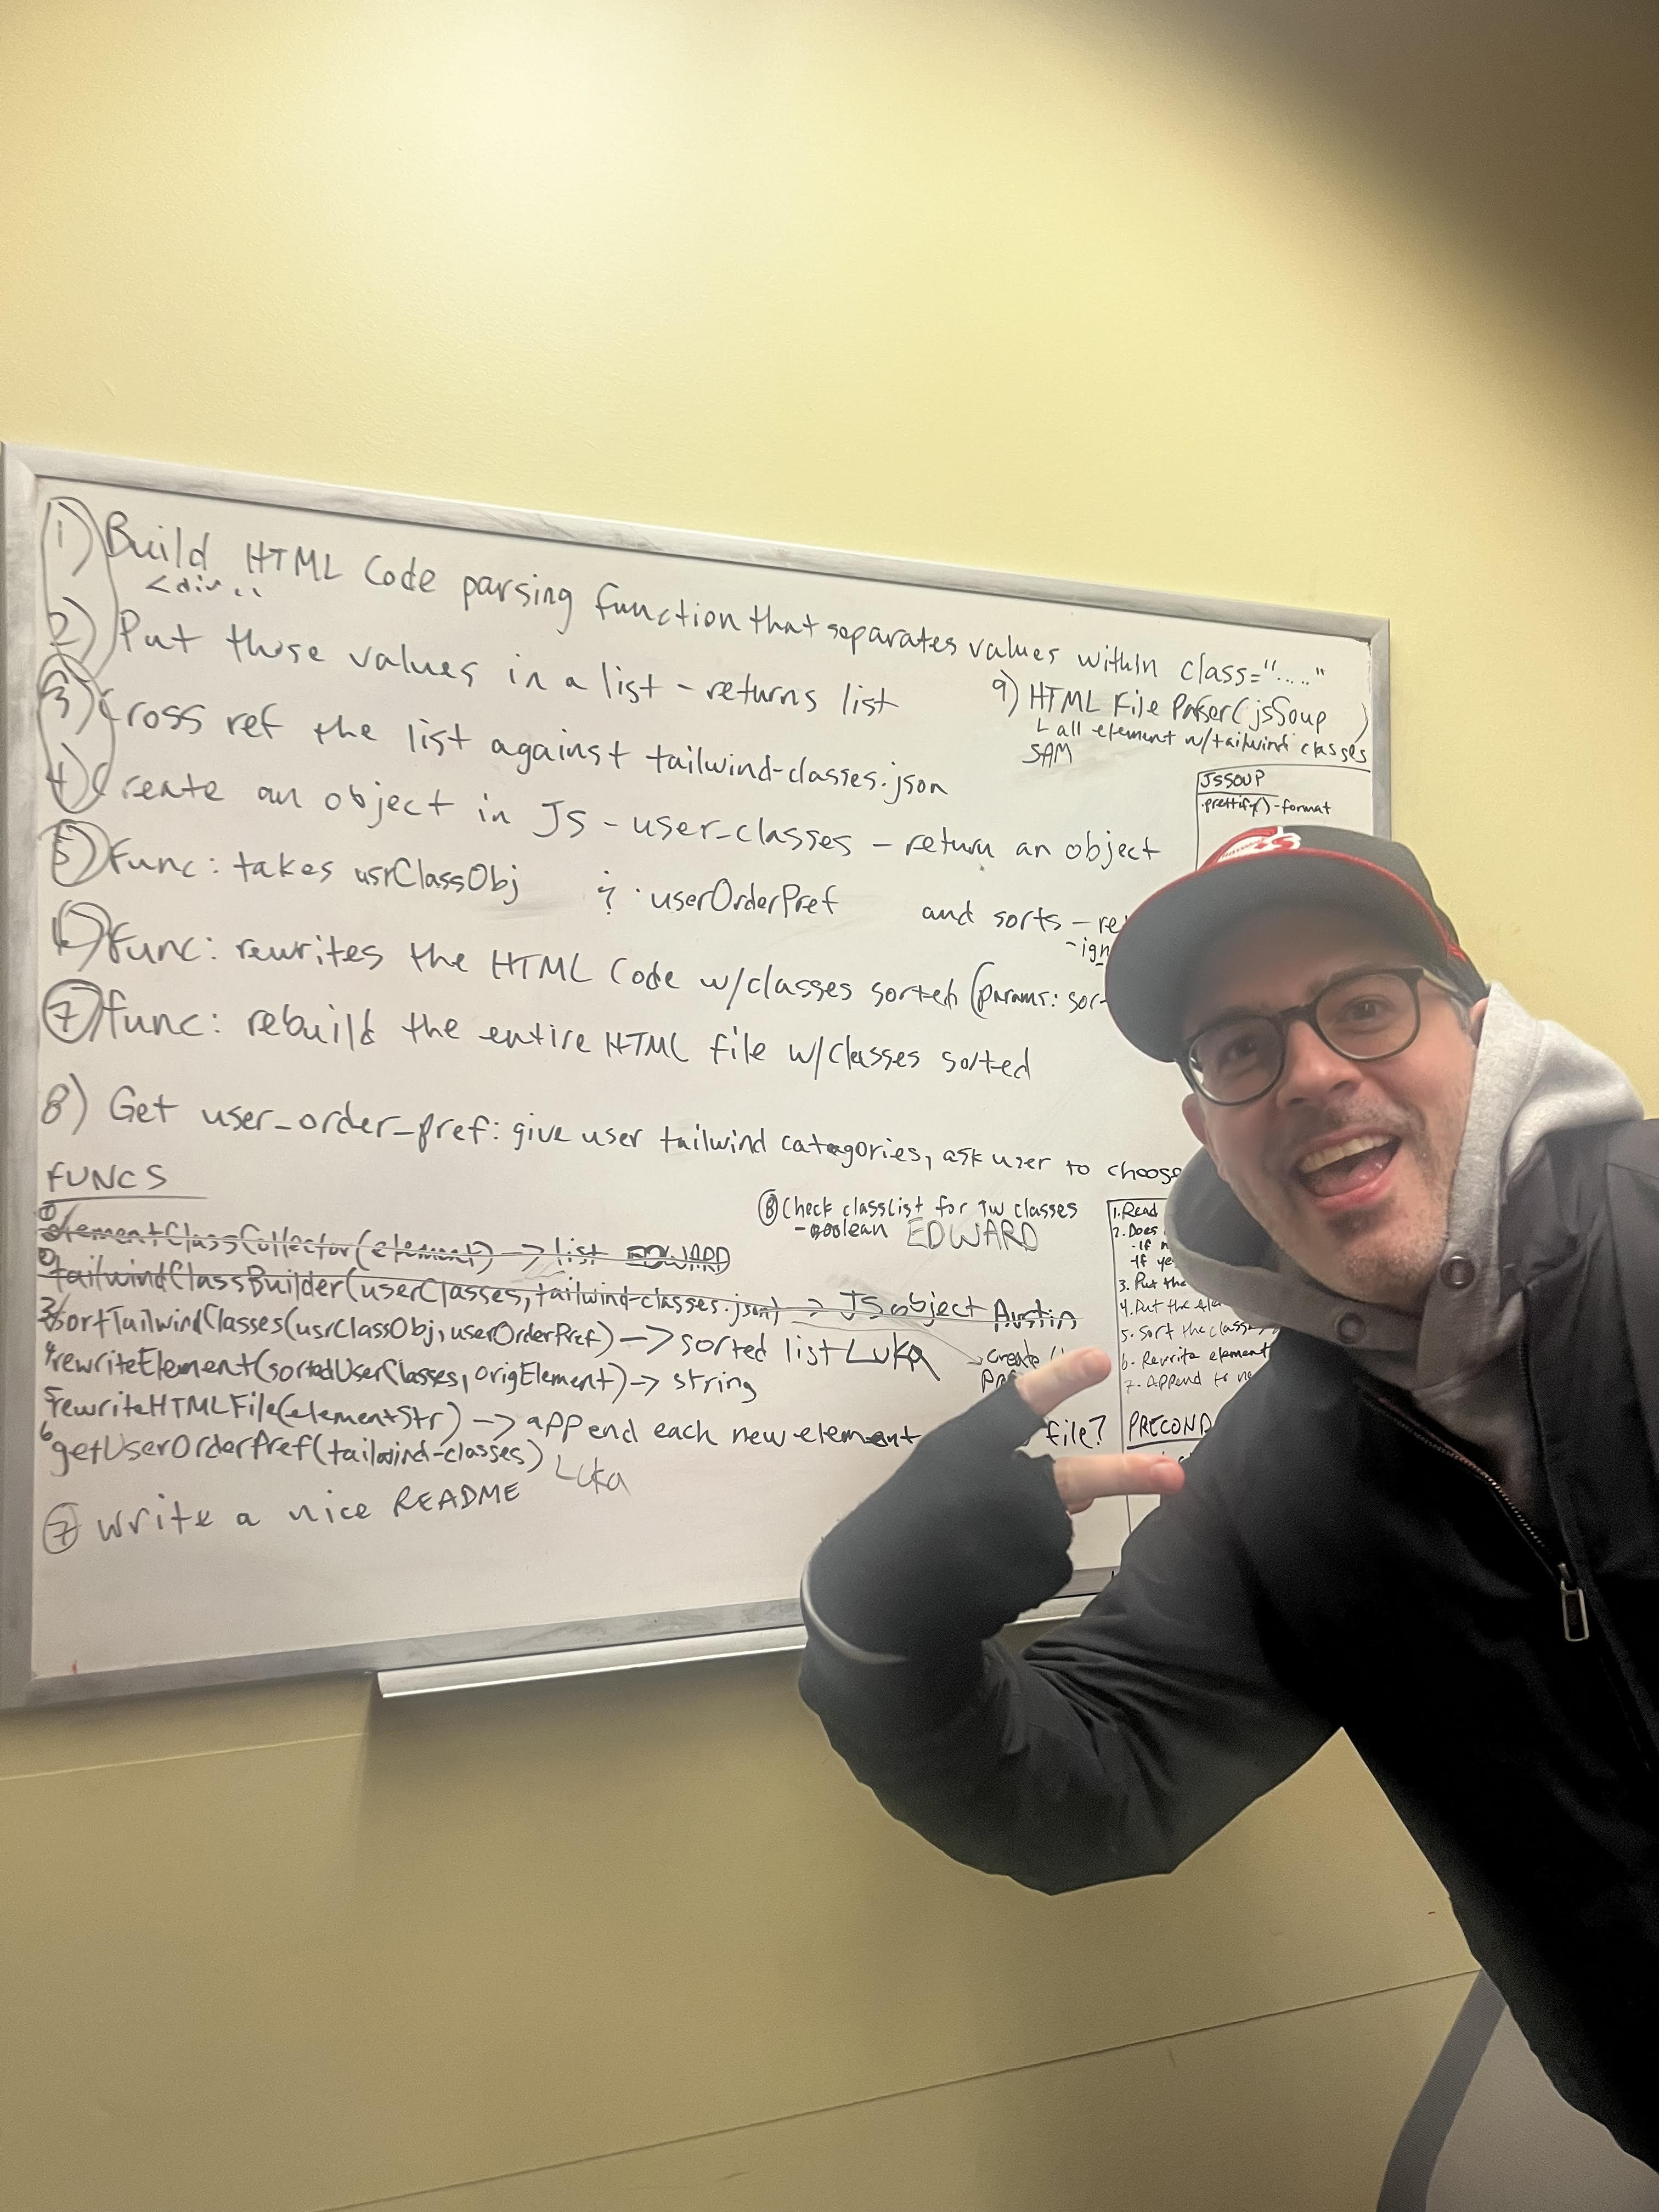 1) Build HTML Code parsing function that separates values within class="....."
<div..
2) Put those values in a list - returns list
3) Cross ref the list against tailwind-classes.json
4) Create an object in JS - user_classes - return an object
5) func: takes usrClassObj & userOrderPref and sorts - re
-ign
6) func: rewrites the HTML Code w/classes sorted (params: sor
7) func: rebuild the entire HTML file w/classes sorted
8) Get user_order_pref: give user tailwind categories, ask user to choose
9) HTML File Parser (jsSoup )
all element w/tailwind classes
SAM
JSSOUP
.prettify() - format
FUNCS
① elementClassCollector(element) -> list EDWARD
② tailwindClassBuilder(userClasses, tailwind-classes.json) -> JS object Austin
3 sortTailwindClasses(usrClassObj, userOrderPref) -> sorted list Luka
4 rewriteElement(sortedUserClasses, origElement) -> string
5 rewriteHTMLFile(elementStr) -> append each new element file?
6 getUserOrderPref(tailwind-classes) Luka
⑦ write a nice README
⑧ Check classlist for TW classes
-Boolean EDWARD
create
1. Read
2. Does
-If
-If ye
3. Put the
4. Put the ele
5. Sort the classes
6. Rewrite element
7. Append to ne
PRECOND